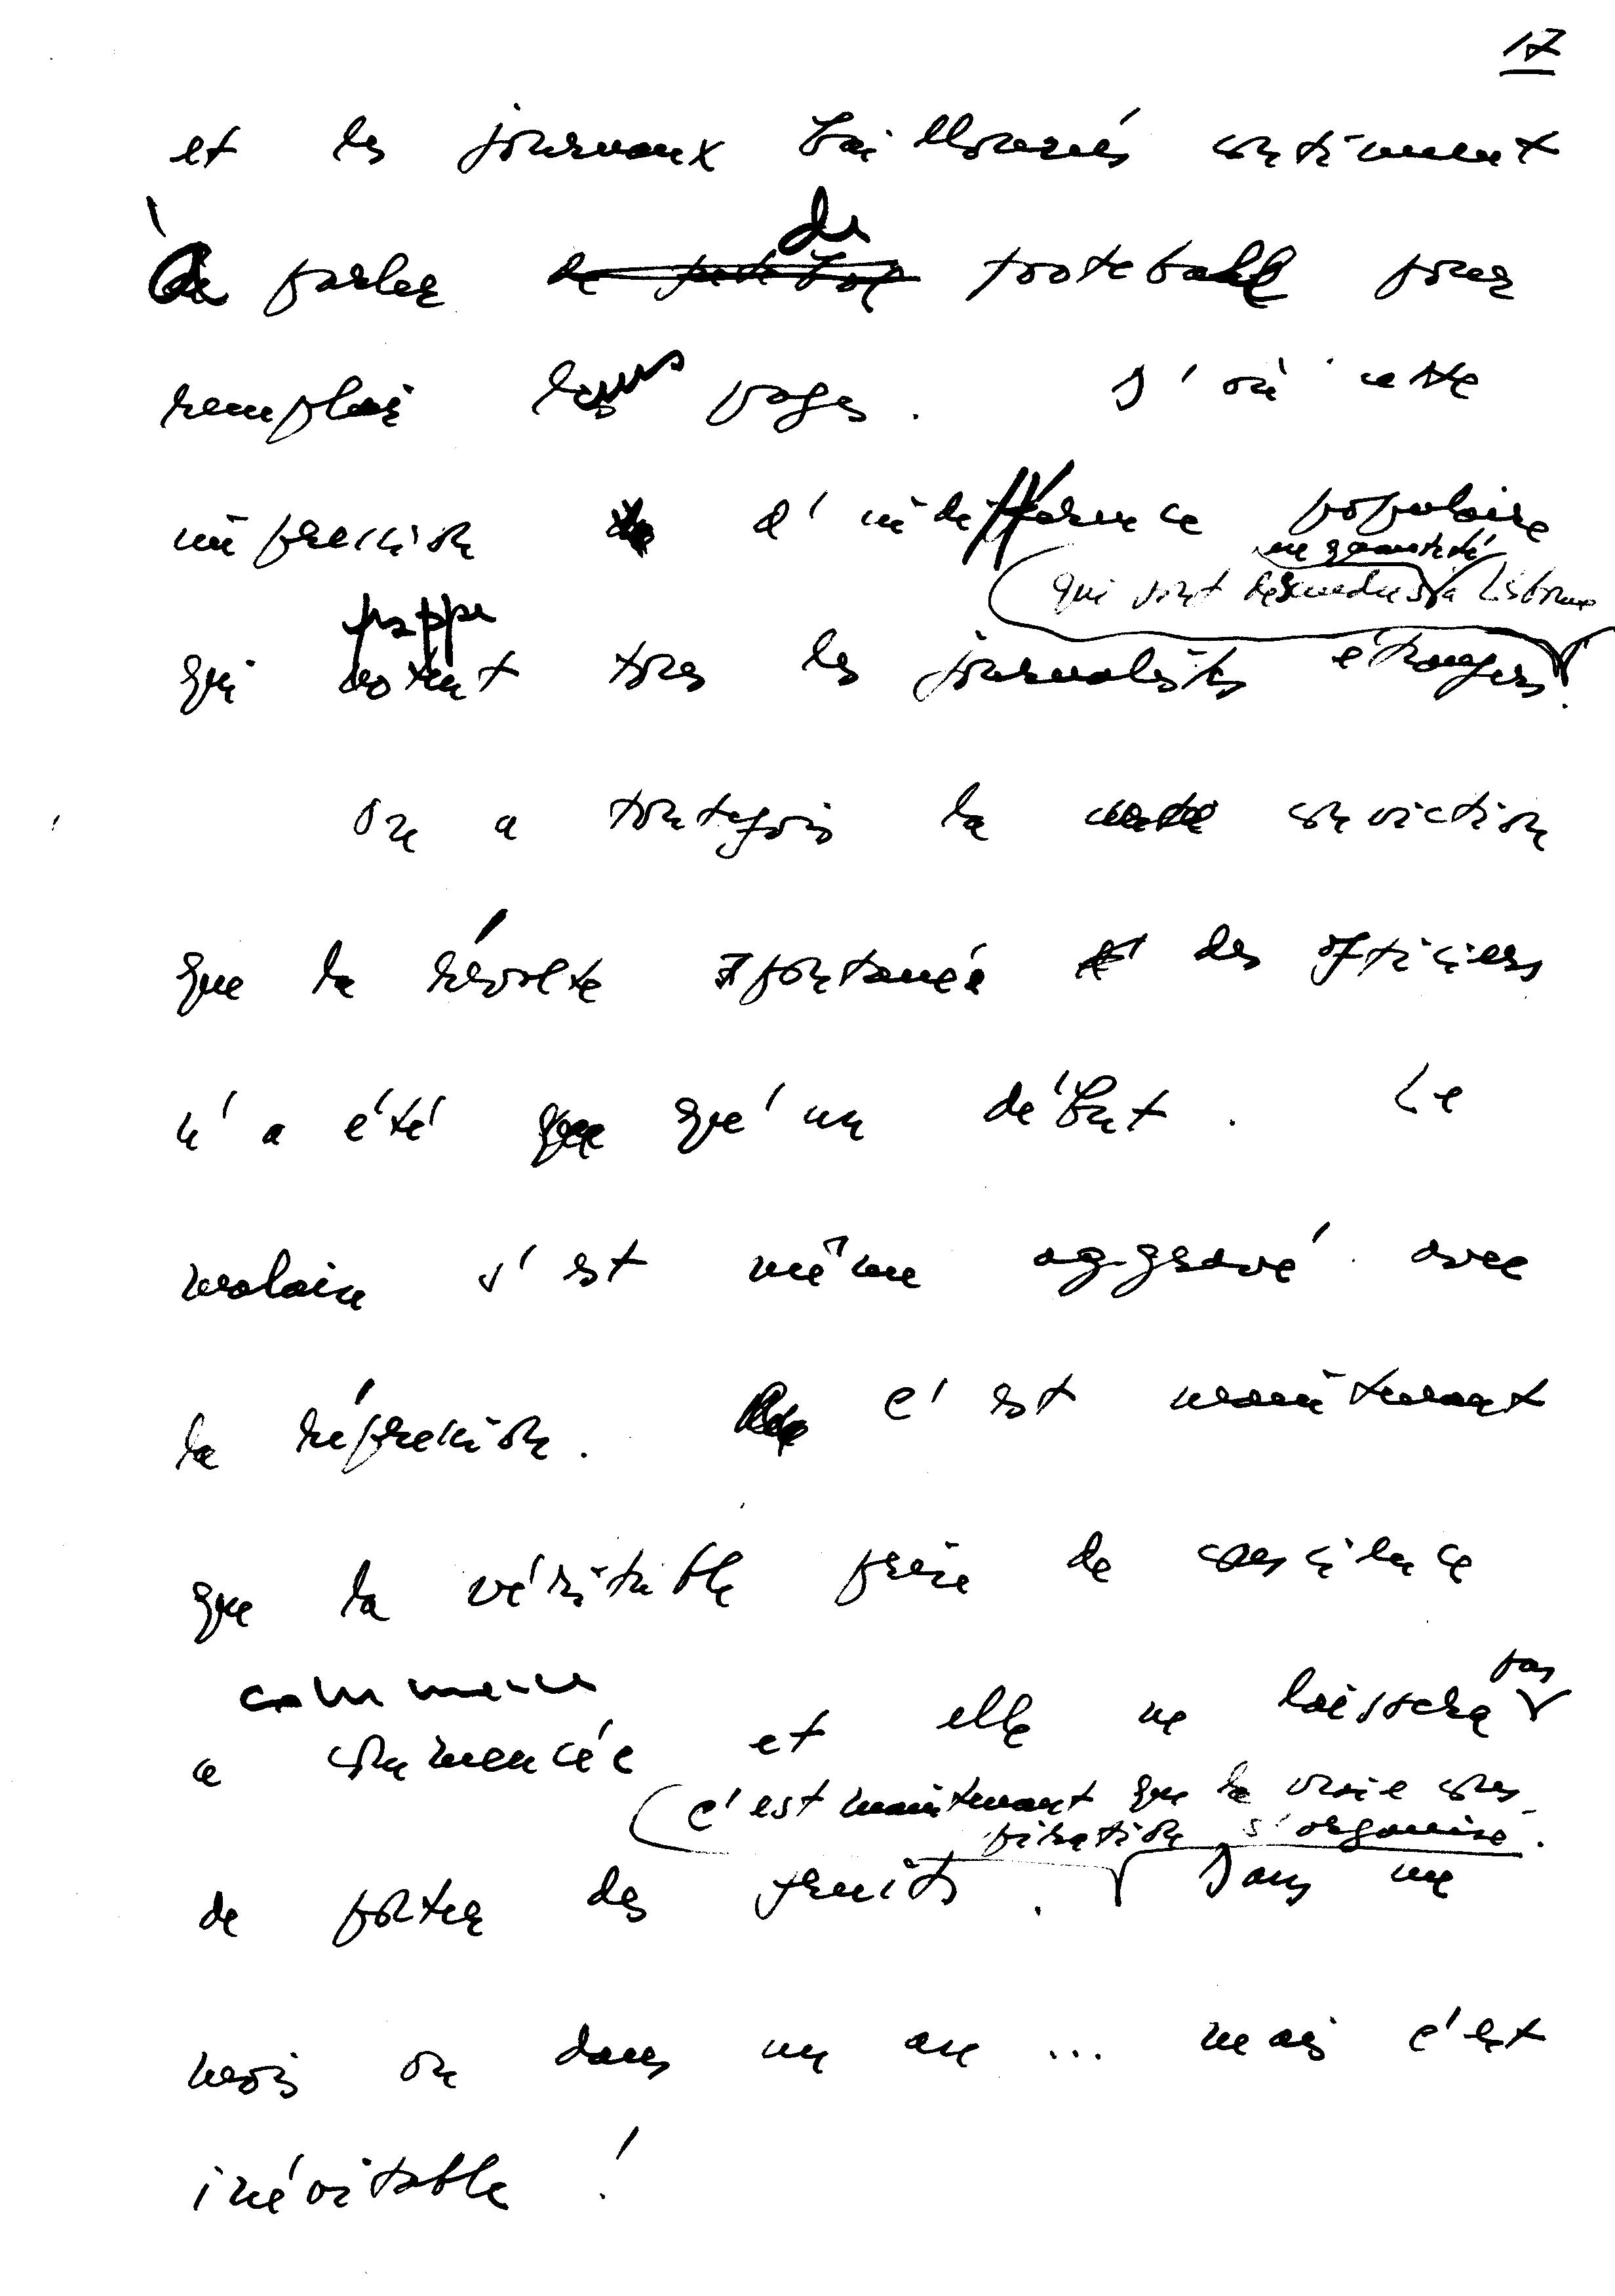 17
et les journaux baillonnés continuent
à parler de football
de footeball pour
remplir leurs pages. D'où cette
impression d'indifférence populaire
en quantité
qui sont descendus à Lisbonne
frappe
qui notent tous les journalistes étrangers.
On a toutefois la conviction
que la révolte spontanée des officiers
n'a été que qu'un début. Le
malaise s'est même aggravé avec
la répression. C'est maintenant
que la véritable prise de conscience
commence pas
a commencée et elle ne laissera
c'est maintenant que la vraie cons
piration s'organise.
de porter des fruits. Dans un
mois ou dans un an ... mais c'est
inévitable !